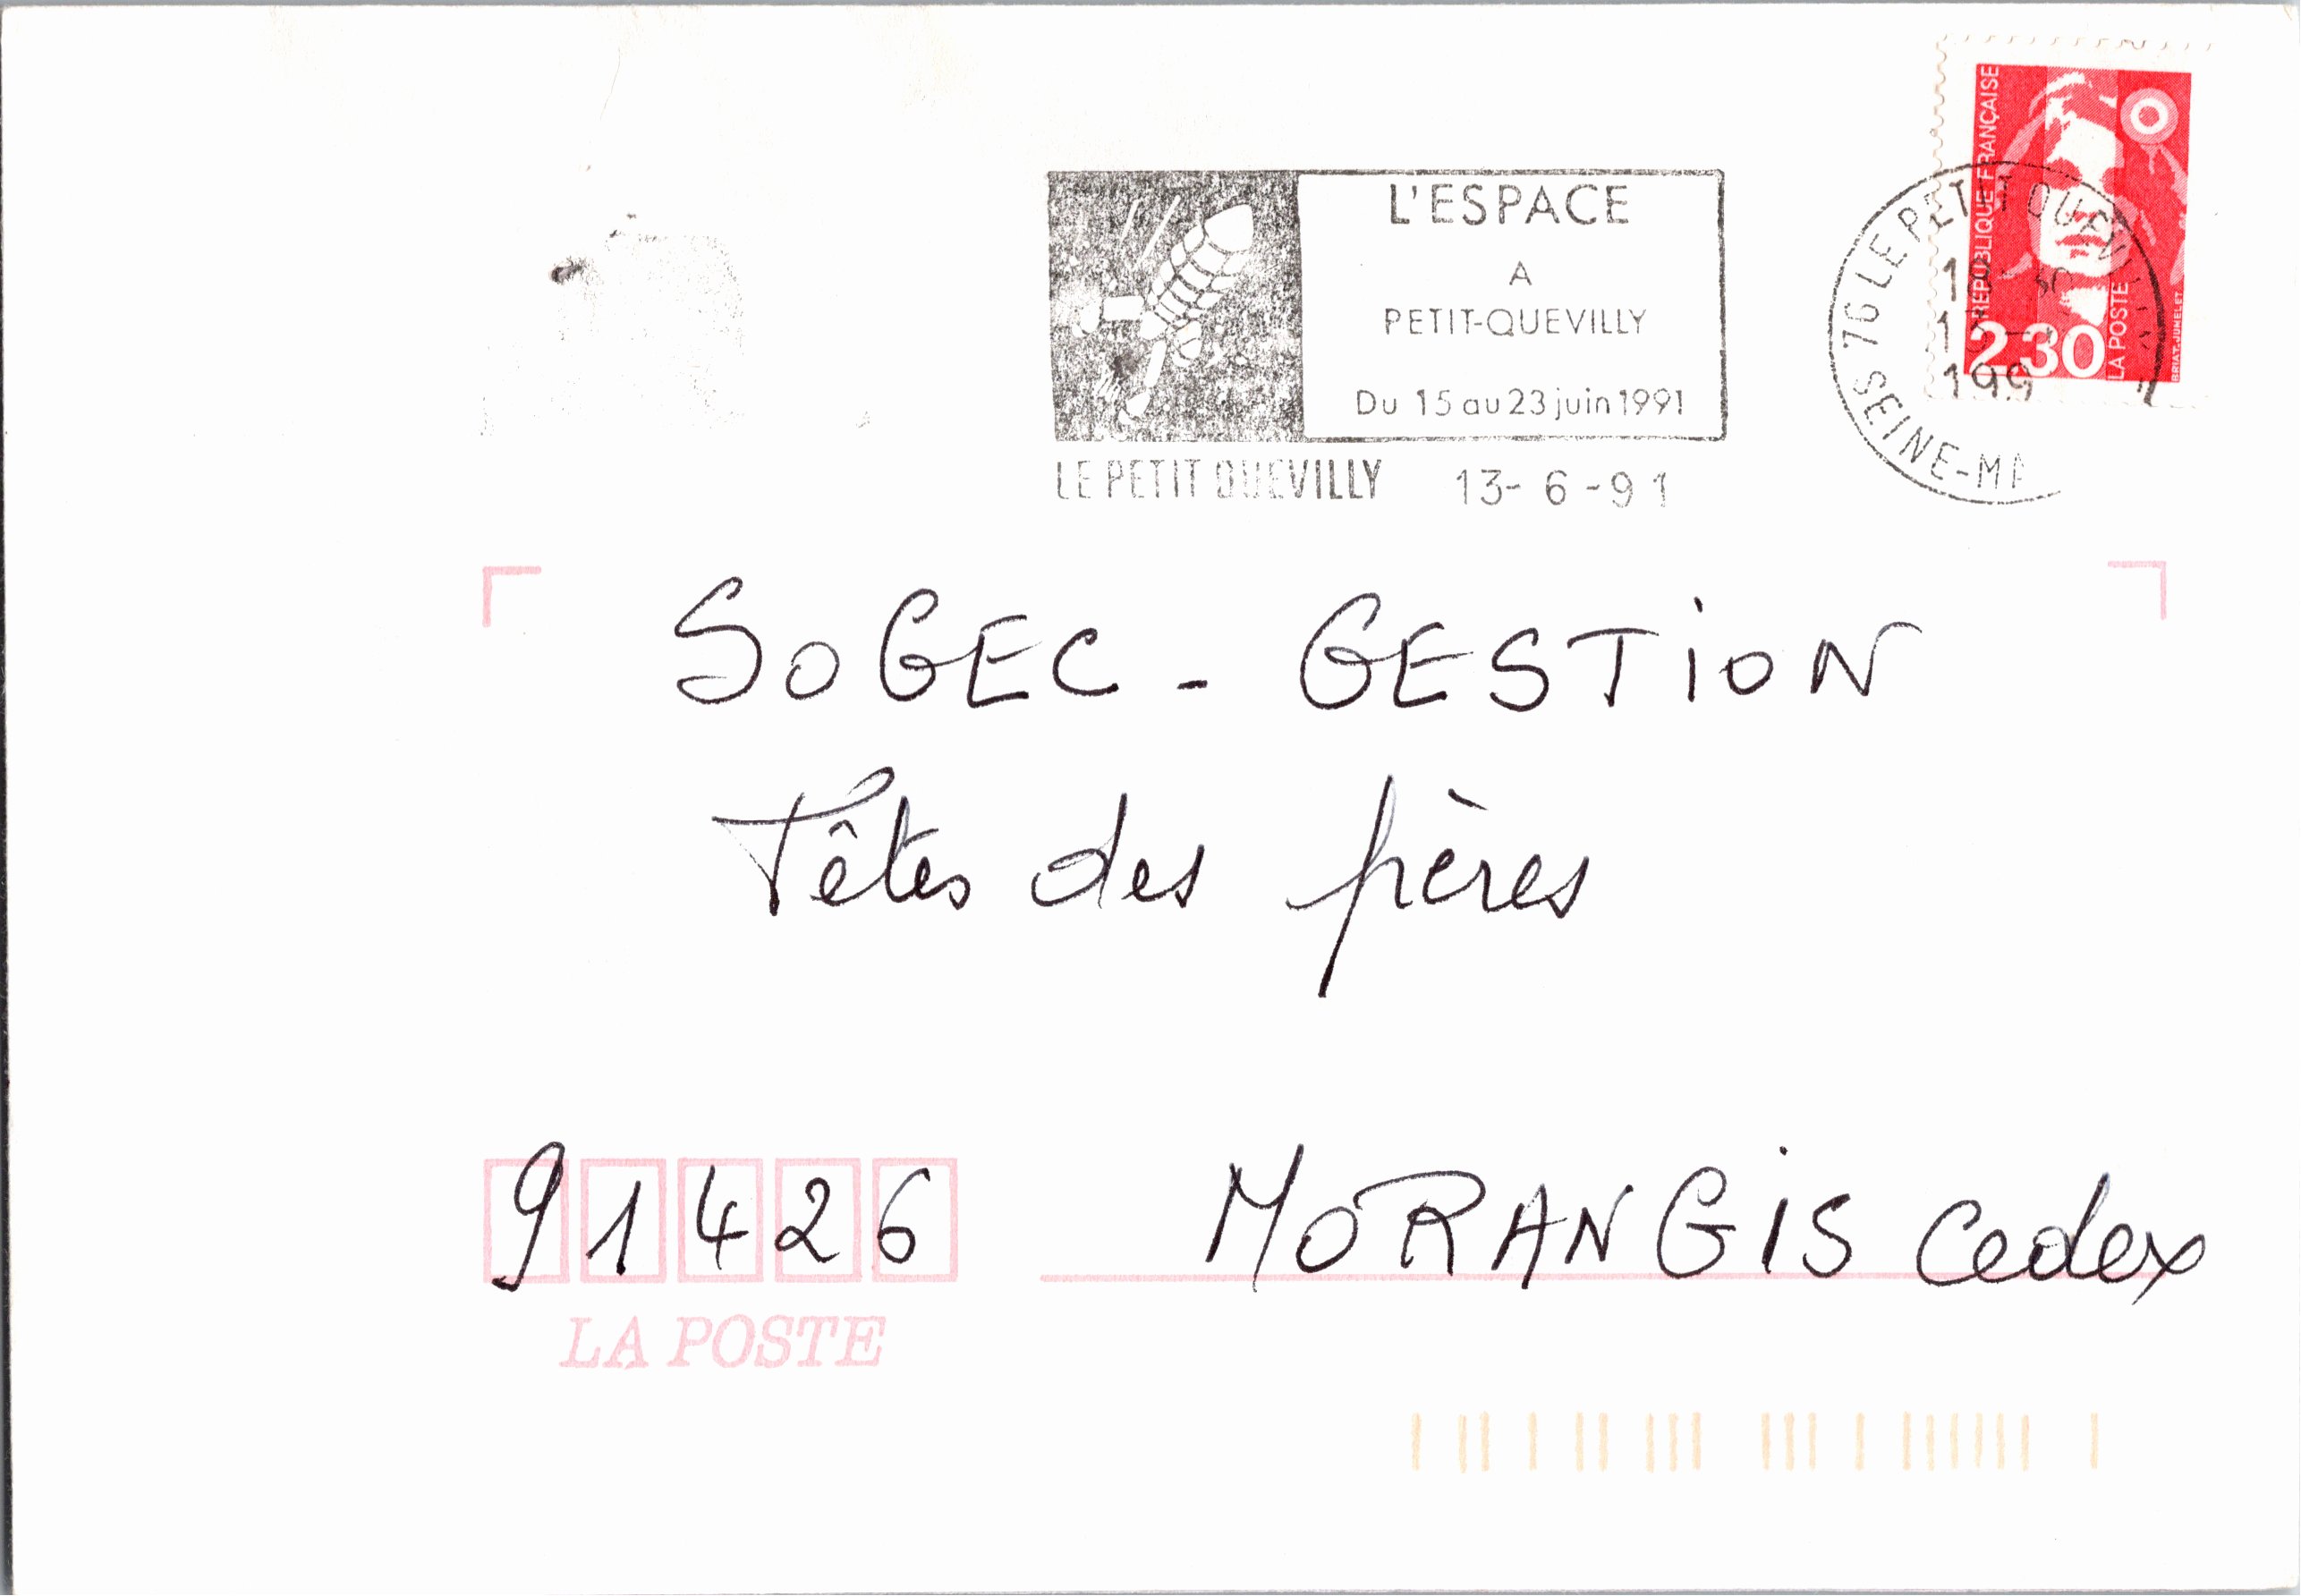 L'ESPACE
A
PETIT-QUEVILLY
Du 15 au 23 juin 1991
LE PETIT QUEVILLY 13-6-91
RÉPUBLIQUE FRANÇAISE
2,30
LA POSTE
BRIAT-JUMELET
76 LE PETIT QUEVILLY
SEINE-MA
SOGEC - GESTION
Fêtes des pères
91426 MORANGIS Cedex
LA POSTE